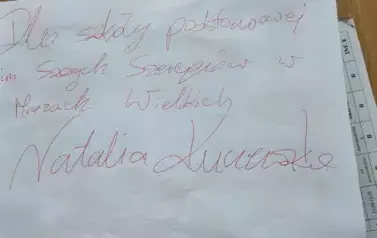 Dla szkoły podstawowej
im Szarych Szeregów w
Mrozach Wielkich
Natalia